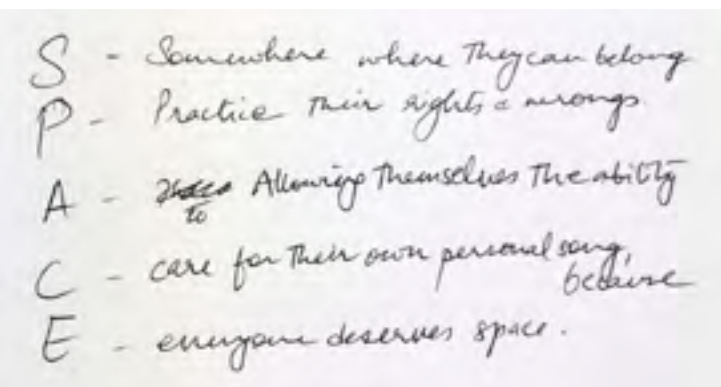 S - Somewhere where They can belong
P - Practice Their rights & wrongs.
A - Allowing Themselves The ability
to
C - care for Their own personal song,
because
E - everyone deserves space.